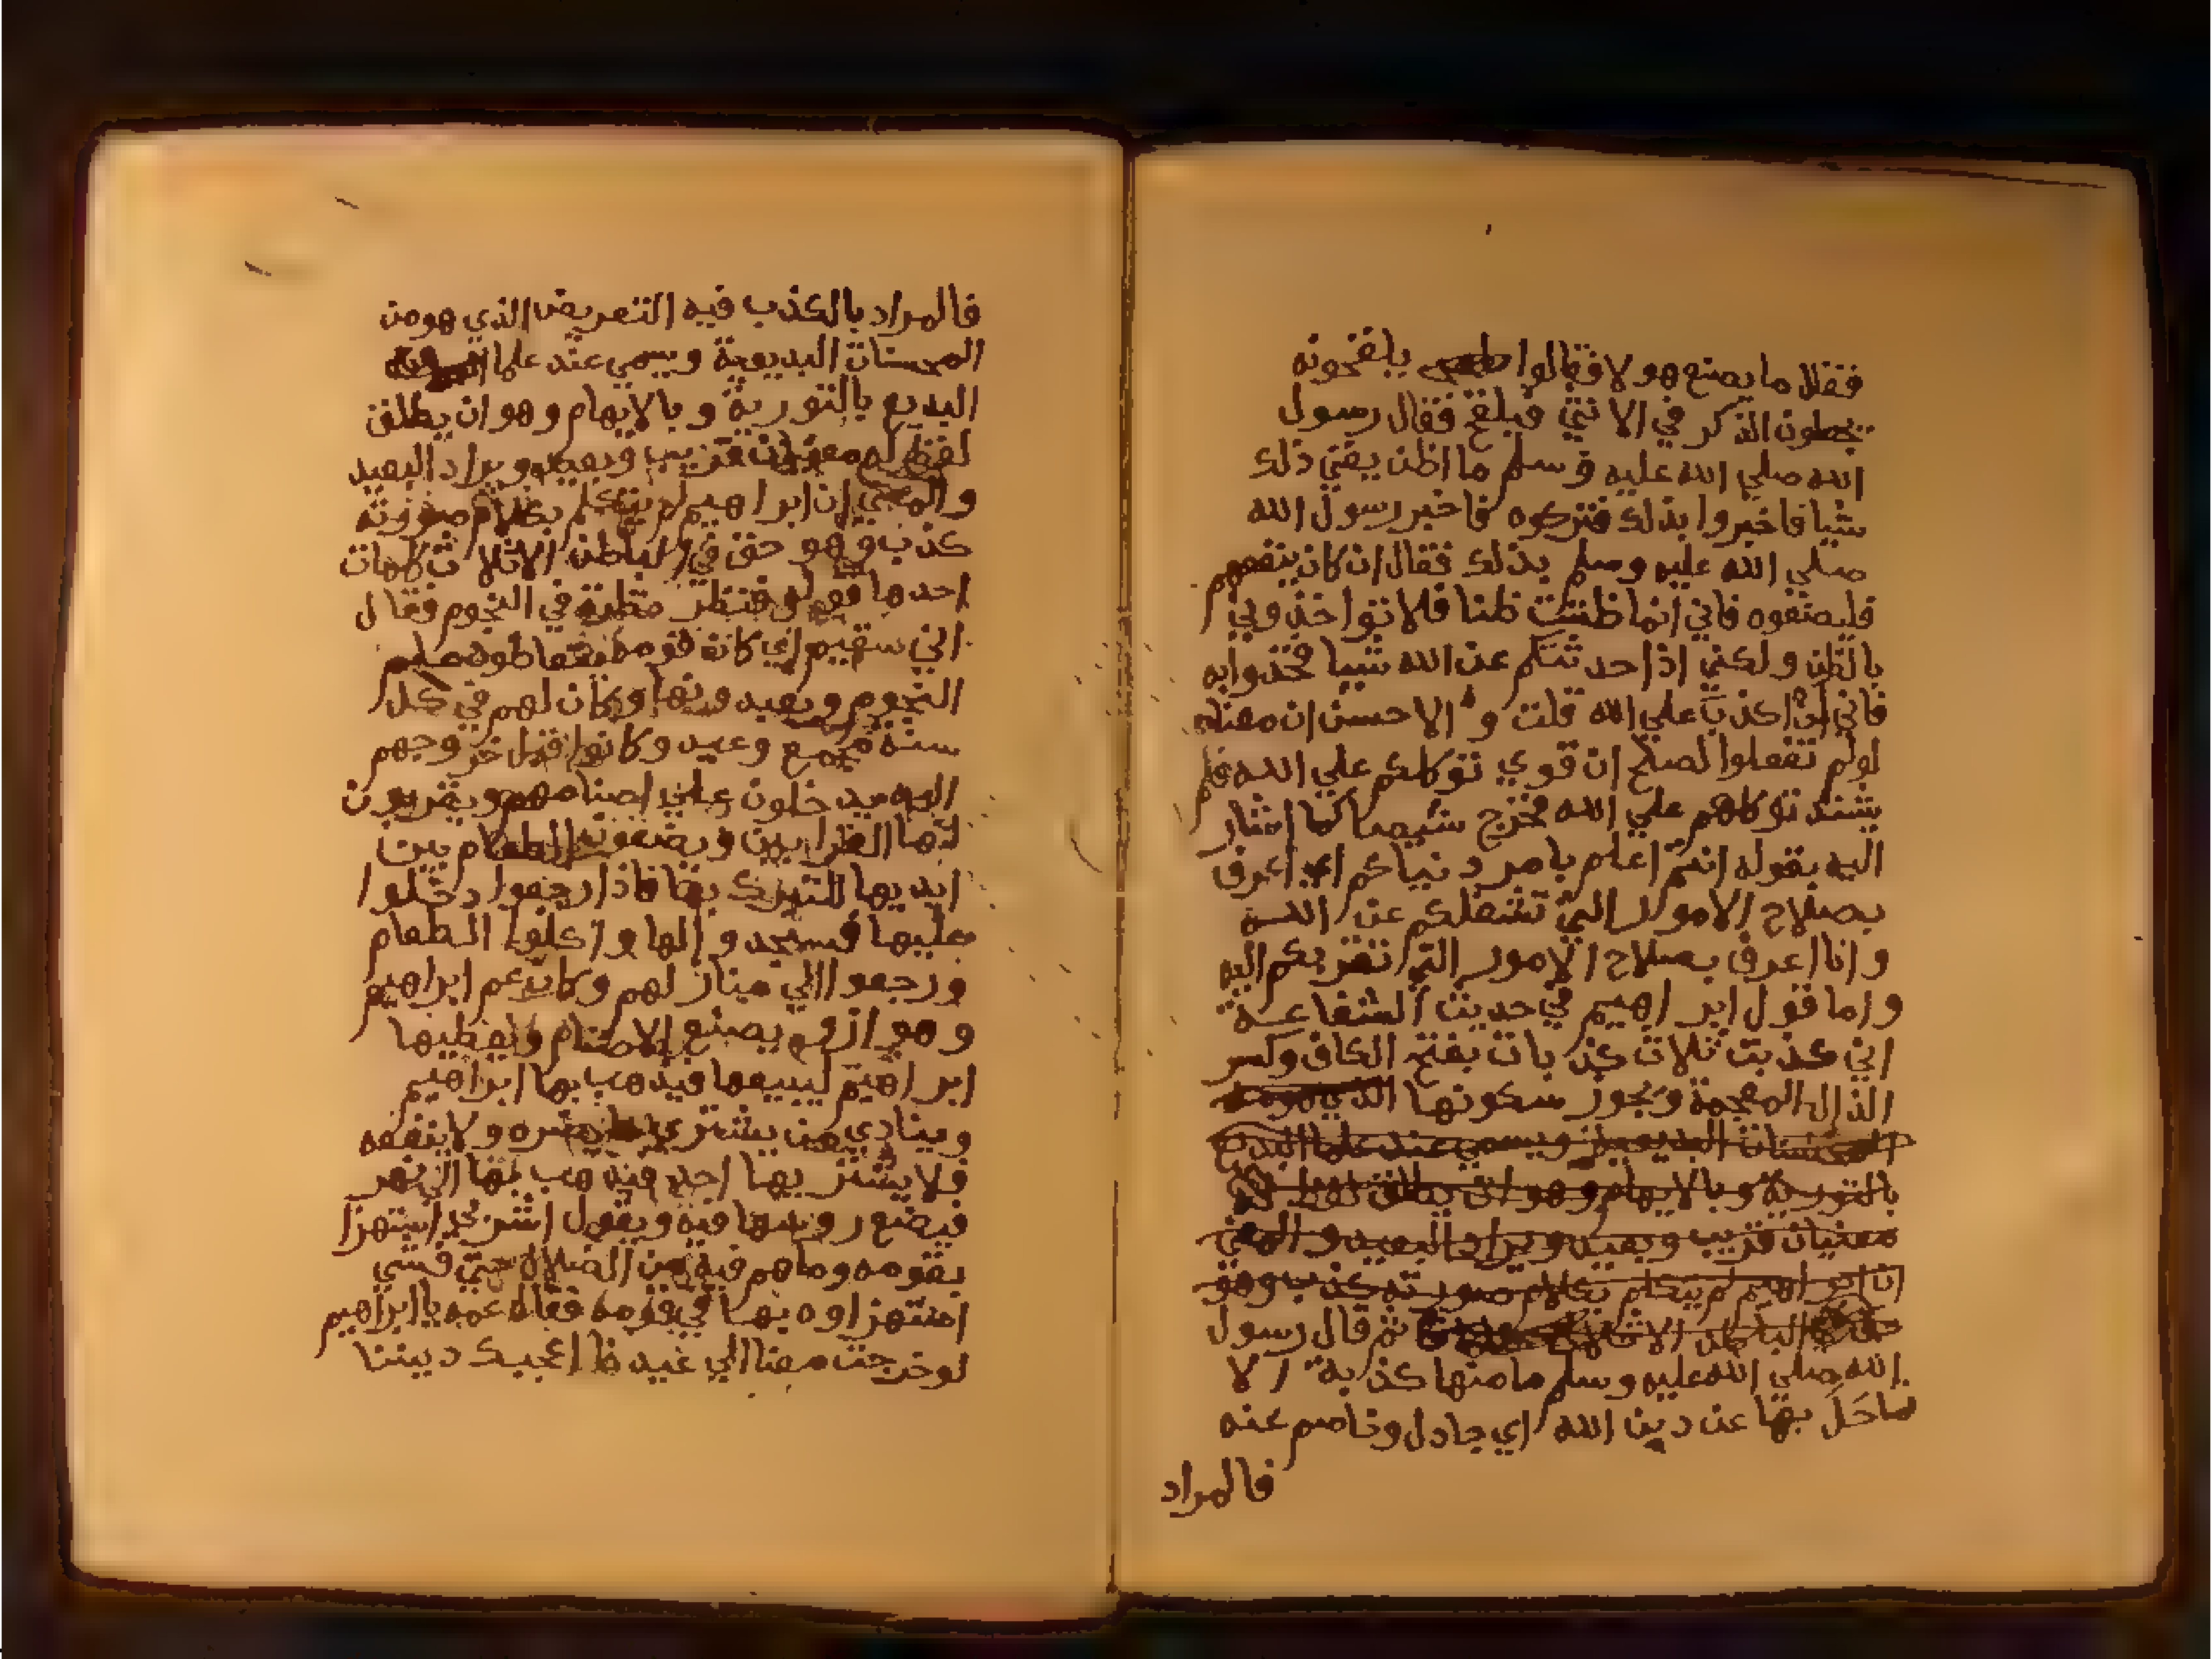 فقلا ما يصنع هولا فقالوا يلقحونه
يجعلون الذكر في الانثي فيلقح فقال رسول
الله صلي الله عليه وسلم ما اظن يغني ذلك
شيا فاخبروا بذلك فتركوه فاخبر رسول الله
صلي الله عليه وسلم بذلك فقال ان كان ينفعهم
فليصنعوه فاني انما ظننت ظنا فلا تواخذوني
بالظن ولكني اذا حدثتكم عن الله شيا فخذوا به
فاني لن اكذب علي الله قلت والاحسن ان معناه
لو لم تفعلوا لصلح ان قوي توكلكم علي الله فلم
يشتد توكلهم علي الله فخرج شيصا كما اشار
اليه بقوله انتم اعلم بامر دنياكم اي اعرف
بصلاح الامور التي تشغلكم عن الله
وانا اعرف بصلاح الامور التي تقربكم اليه
واما قول ابراهيم في حديث الشفاعة
اني كذبت ثلاث كذبات بفتح الكاف وكسر
الذال المعجمة ويجوز سكونها الذي هو من
المحسنات البديعية ويسمي عند علما البديع
بالتورية وبالايهام وهو ان يطلق لفظ له
معنيان قريب وبعيد ويراد البعيد والمعني
ان ابراهيم لم يتكلم بكلام صورته كذب وهو
حق في الباطن الا ثلاث ثم قال رسول
الله صلي الله عليه وسلم ما منها كذبة الا
ماحَلَ بها عن دين الله اي جادل وخاصم عنه
فالمراد
فالمراد بالكذب فيه التعريض الذي هو من
المحسنات البديعية ويسمي عند علما
البديع بالتورية وبالايهام وهو ان يطلق
لفظ له معنيان قريب وبعيد ويراد البعيد
والمعني ان ابراهيم لم يتكلم بكلام صورته
كذب وهو حق في الباطن الا ثلاث كلمات
احدها قوله فنظر نظرة في النجوم فقال
اني سقيم اي كان قومه يتعاطون علم
النجوم ويعبدونها وكان لهم في كل
سنة مجمع وعيد وكانوا قبل خروجهم
اليه يدخلون علي اصنامهم ويقربون
لها القرابين ويضعون الطعام بين
ايديها للتبرك بها فاذا رجعوا دخلوا
عليها فسجدوا لها واكلوا الطعام
ورجعوا الي منازلهم وكان عم ابراهيم
وهو ازر يصنع الاصنام ويعطيها
ابراهيم ليبيعها فيذهب بها ابراهيم
وينادي من يشتري ما يضره ولا ينفعه
فلا يشتريها احد فيذهب بها الي نهر
فيضع روسها فيه ويقول اشربي استهزا
بقومه وما هم فيه من الضلال حتي فشي
استهزاوه بها في قومه فقال عمه يا ابراهيم
لو خرجت معنا الي عيدنا اعجبك ديننا